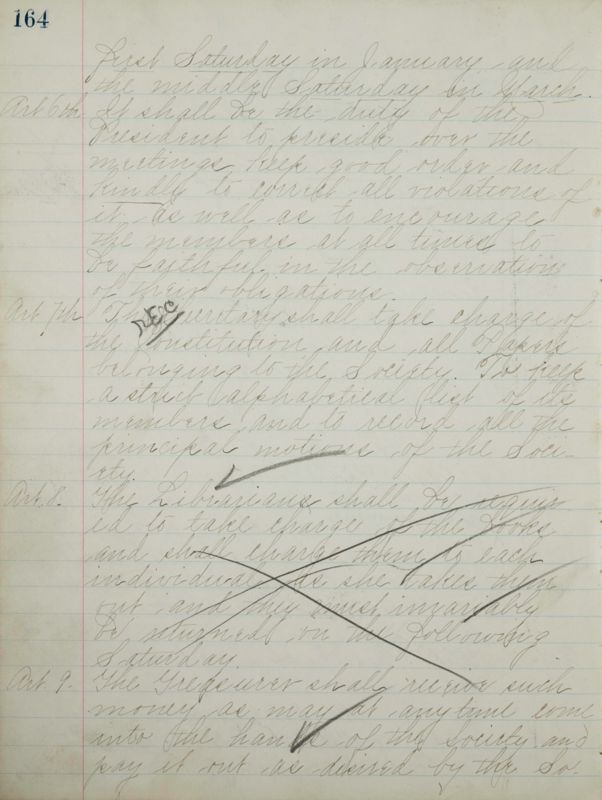 164
first Saturday in January and
the middle Saturday in March.
Art 6th It shall be the duty of the
President to preside over the
meetings keep good order and
kindly to correct all violations of
it, as well as to encourage
the members at all times to
be faithful in the observation
of their obligations.
Art 7th The Secretary shall take charge of
the Constitution and all Papers
belonging to the Society. To keep
a strict alphabetical list of its
members and to record all the
principal motions of the Soci-
ety.
Art. 8. The Librarians shall be requir
ed to take charge of the books
and shall charge them to each
individual as she takes them
out and they must invariably
be returned on the following
Saturday.
Art 9. The Treasurer shall receive such
money as may at any time come
into the hands of the Society and
pay it out as desired by the So-